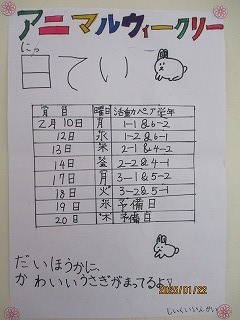 アニマルウィークリー
にっ
日てい
月日 曜日 活動ペア学年
2月10日 月 1-1&6-2
12日 水 1-2&6-1
13日 木 2-1&4-2
14日 金 2-2&4-1
17日 月 3-1&5-2
18日 火 3-2&5-1
19日 水 予備日
20日 木 予備日
だいほうかに、
かわいいうさぎがまってるよ♪
2025/01/22
しいくいいんかい